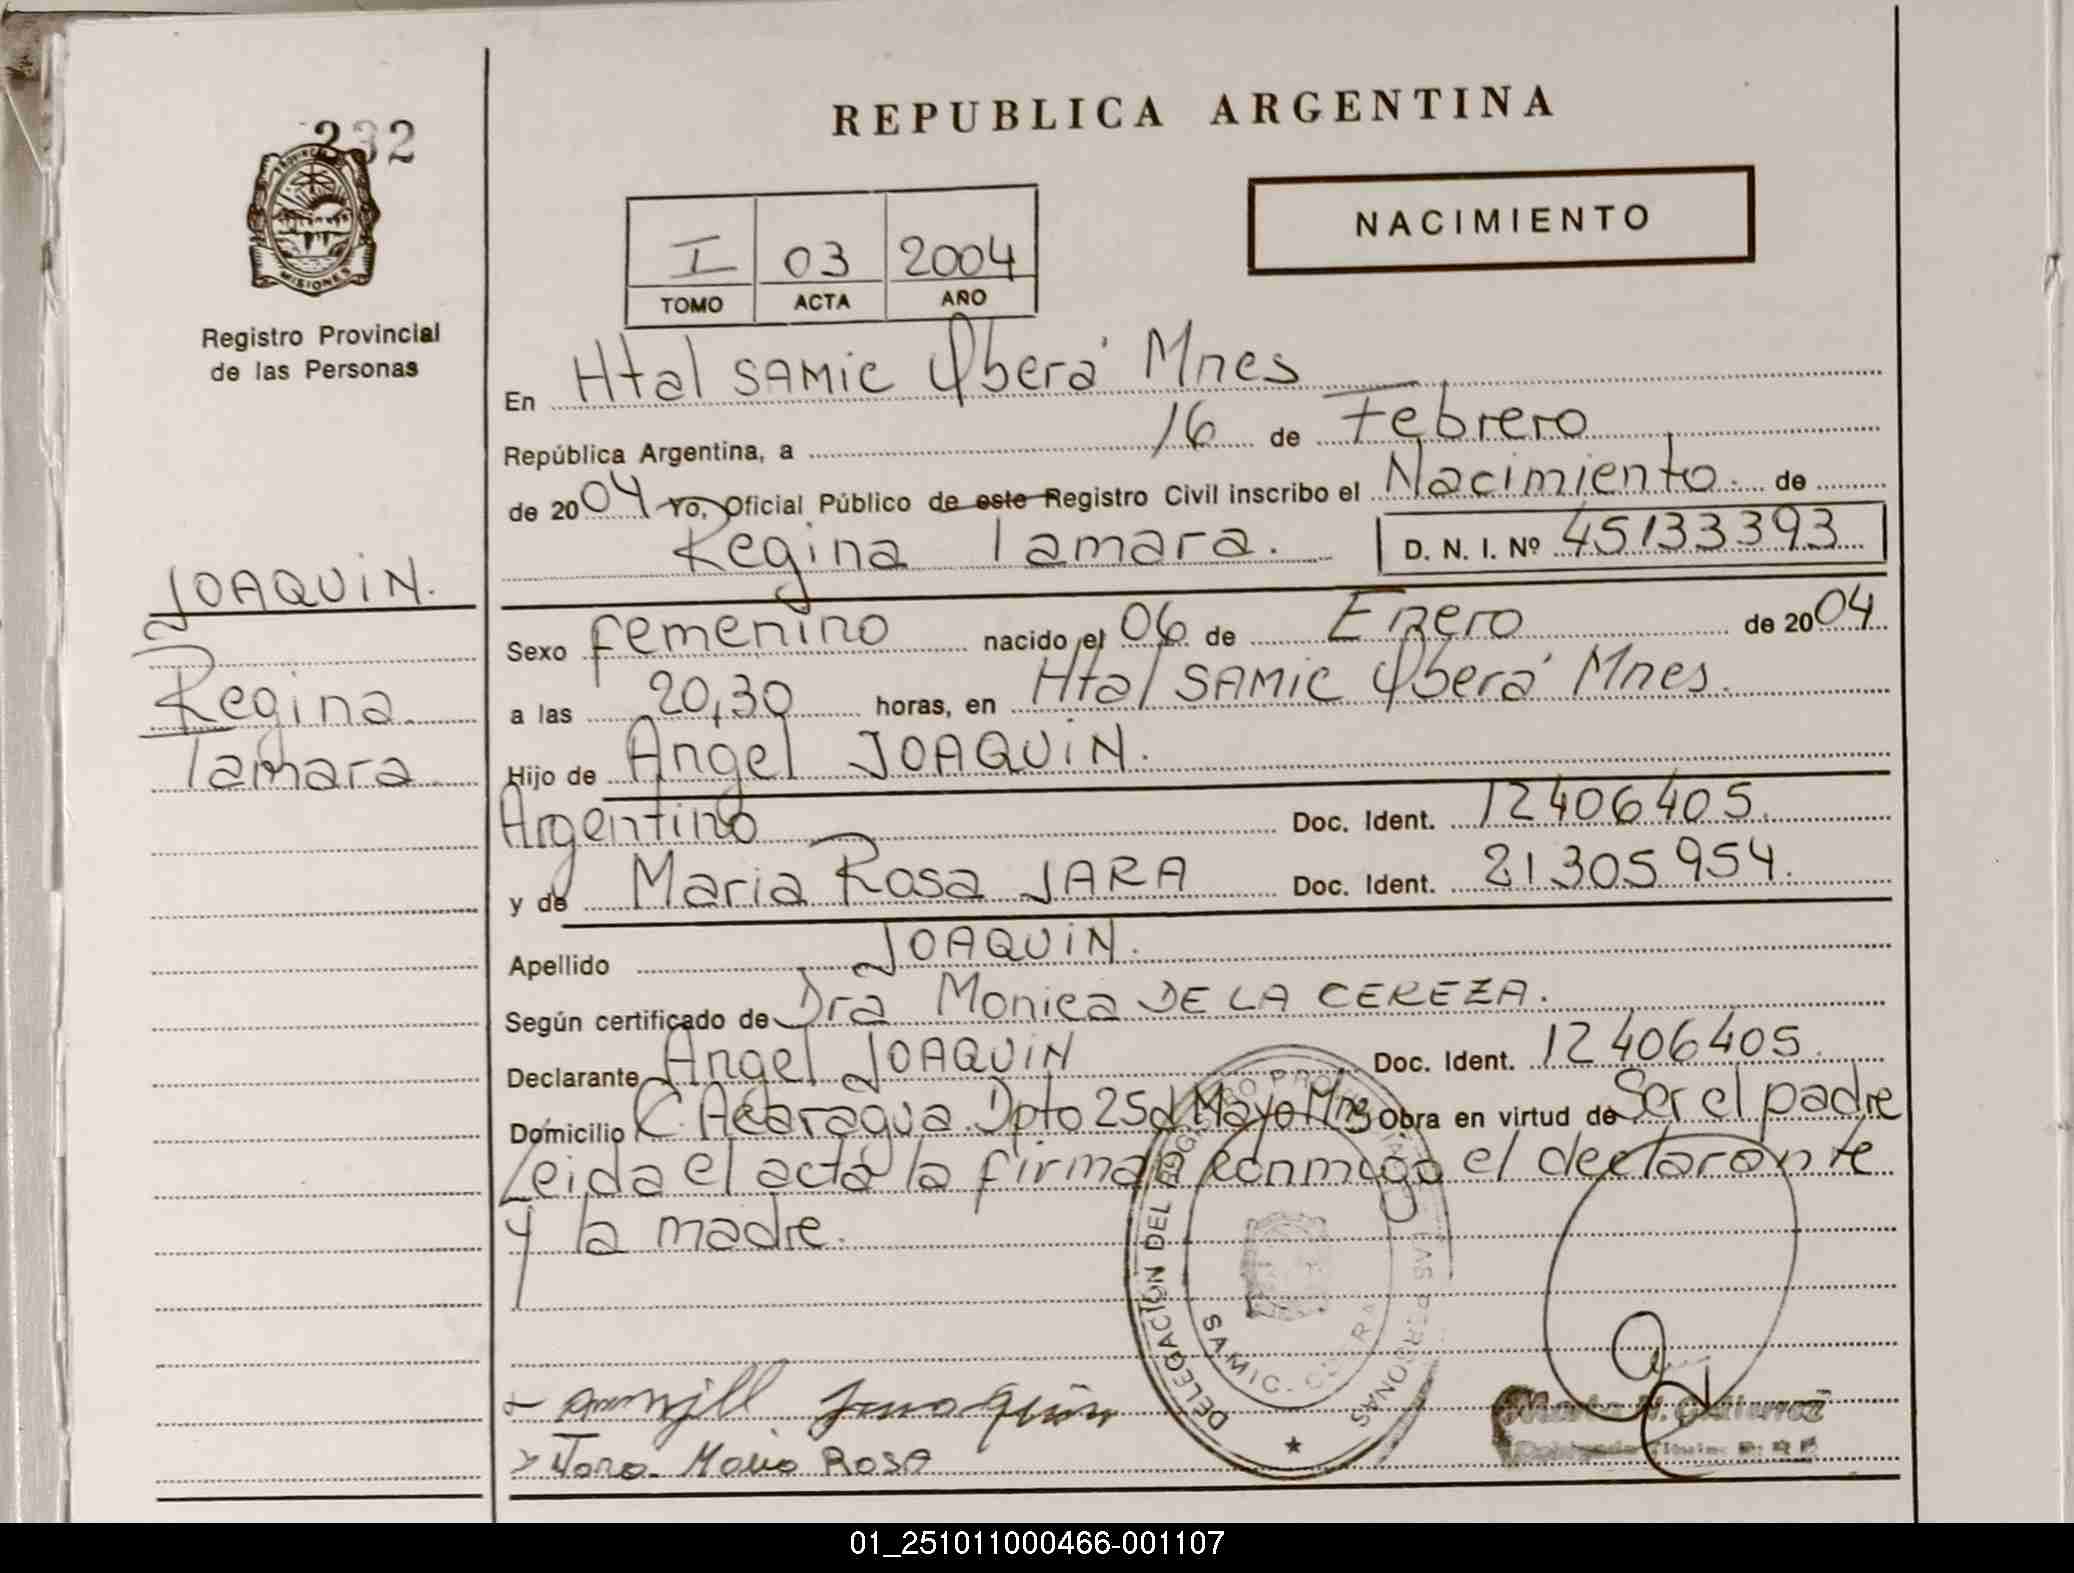 232
PROVINCIA
MISIONES
Registro Provincial
de las Personas
JOAQUIN.
Regina
Tamara
REPUBLICA ARGENTINA
NACIMIENTO
I 03 2004
TOMO ACTA AÑO
En Htal SAMIC Oberá Mnes
República Argentina, a 16 de Febrero
de 2004 Yo, Oficial Público de este Registro Civil inscribo el Nacimiento. de
Regina Tamara. D. N. I. Nº 45133393
Sexo femenino nacido el 06 de Enero de 2004
a las 20,30 horas, en Htal SAMIC Oberá Mnes.
Hijo de Angel JOAQUIN.
Argentino Doc. Ident. 12406405.
y de Maria Rosa JARA Doc. Ident. 21305954.
Apellido JOAQUIN.
Según certificado de Dra Monica DE LA CEREZA.
Declarante Angel JOAQUIN Doc. Ident. 12406405.
Domicilio C. Acaragua Dpto 25 d Mayo Mnes Obra en virtud de Ser el padre
Leida el acta la firman conmigo el declarante
y la madre.
DELEGACIÓN DEL REGISTRO PROVINCIAL DE LAS PERSONAS
SAMIC -
Joaquin
Jara Maria ROSA
01_251011000466-001107